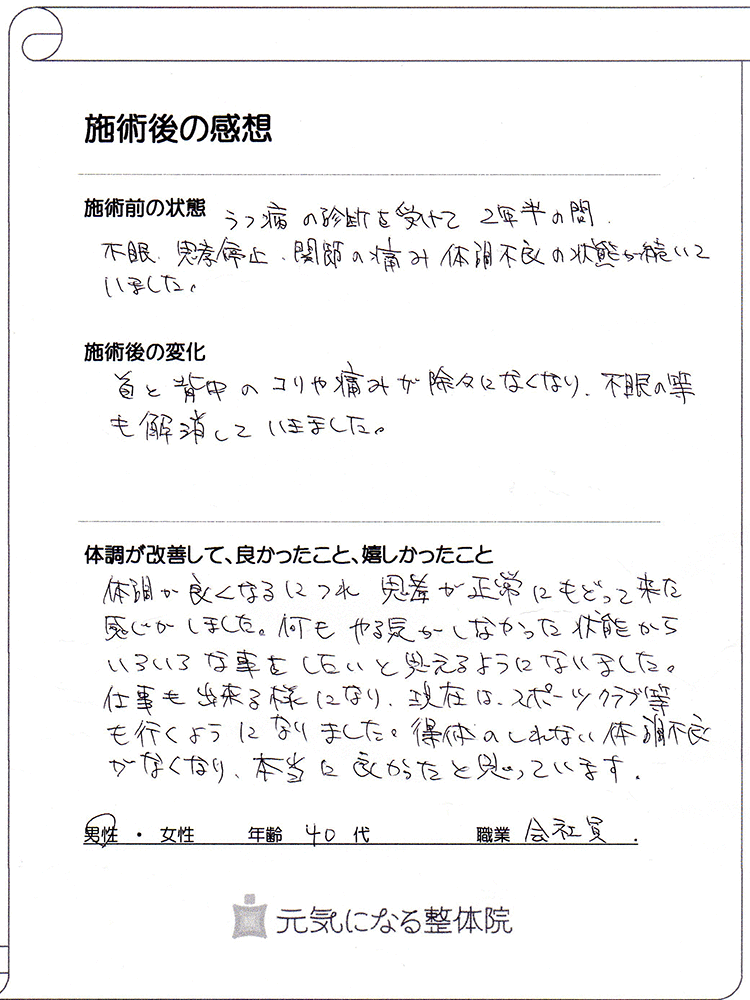 施術後の感想
施術前の状態 うつ病の診断を受けて 2年半の間、
不眠、思考停止、関節の痛み 体調不良の状態が続いて
いました。
施術後の変化
首と背中のコリや痛みが除々になくなり、不眠の等
も解消して いきました。
体調が改善して、良かったこと、嬉しかったこと
体調が良くなるにつれ 思考が正常にもどって来た
感じがしました。何もやる気がしなかった状態から
いろいろな事をしたいと思えるようになりました。
仕事も出来る様になり、現在は、スポーツクラブ等
も行くようになりました。得体のしれない体調不良
がなくなり、本当に良かったと思っています。
男性 ・ 女性 年齢 40 代 職業 会社員
元気になる整体院